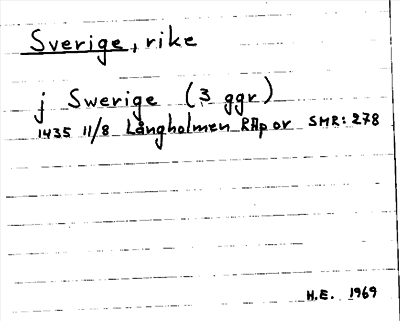 Sverige, rike
j Swerige (3 ggr)
1435 11/8 Långholmen RAp or SMR: 278
H.E. 1969